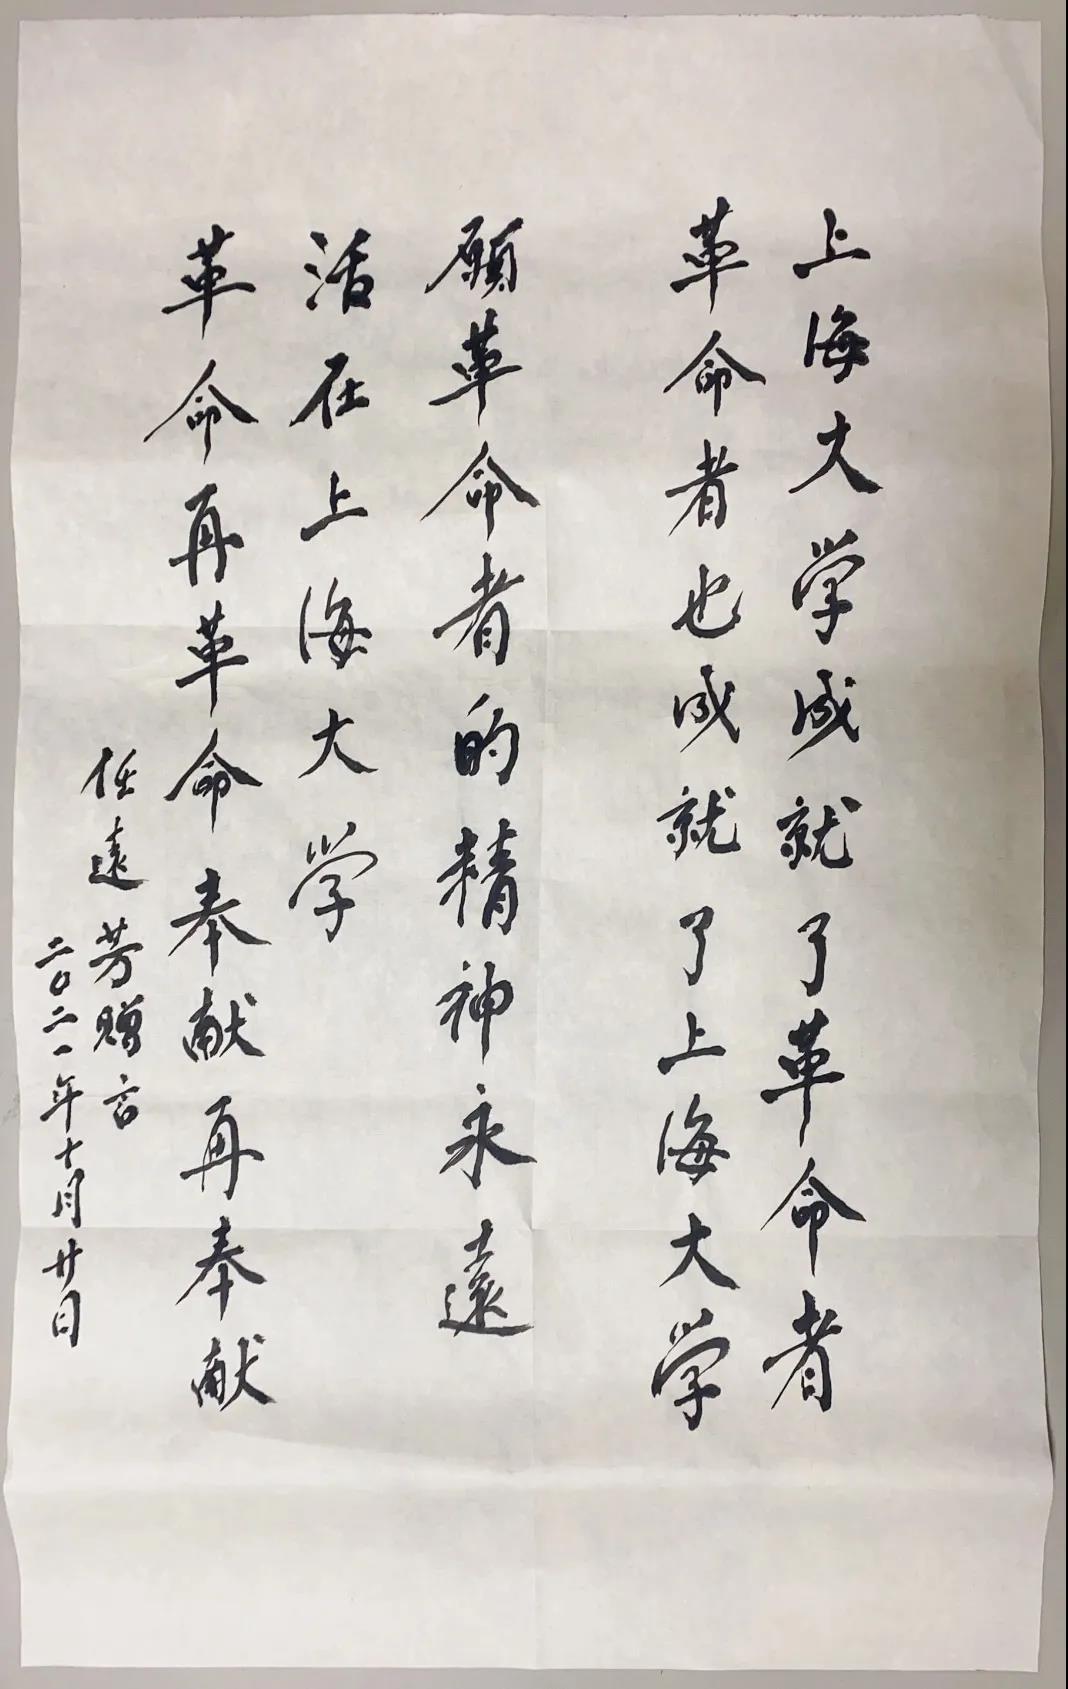 上海大学成就了革命者
革命者也成就了上海大学
願革命者的精神永遠
活在上海大学
革命再革命奉献再奉献
任遠芳赠言
二〇二一年十月廿日